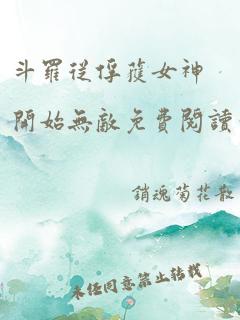 斗羅從俘獲女神
開始無敵免費閱讀
銷魂菊花散
未經同意禁止轉載